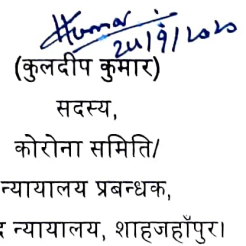 Kumar
24/9/2020
(कुलदीप कुमार)
सदस्य,
कोरोना समिति/
न्यायालय प्रबन्धक,
न्यायालय, शाहजहाँपुर।